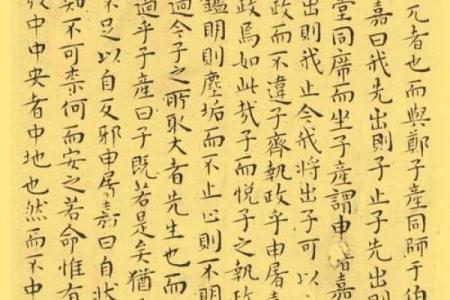 兀者也而與鄭子產同師于伯
嘉曰我先出則子止子先出則
堂同席而坐子產謂申屠嘉
出則我止今我將出子可以
政而不違子齊執政乎申屠
政焉如此哉子而悅子之執政
鑑明則塵垢而不止止則不明
過今子之所取大者先生也而
過乎子產曰子既若是矣猶
不足以自反邪申屠嘉曰自狀
知不可柰何而安之若命惟有
彀中中央者中地也然而不中